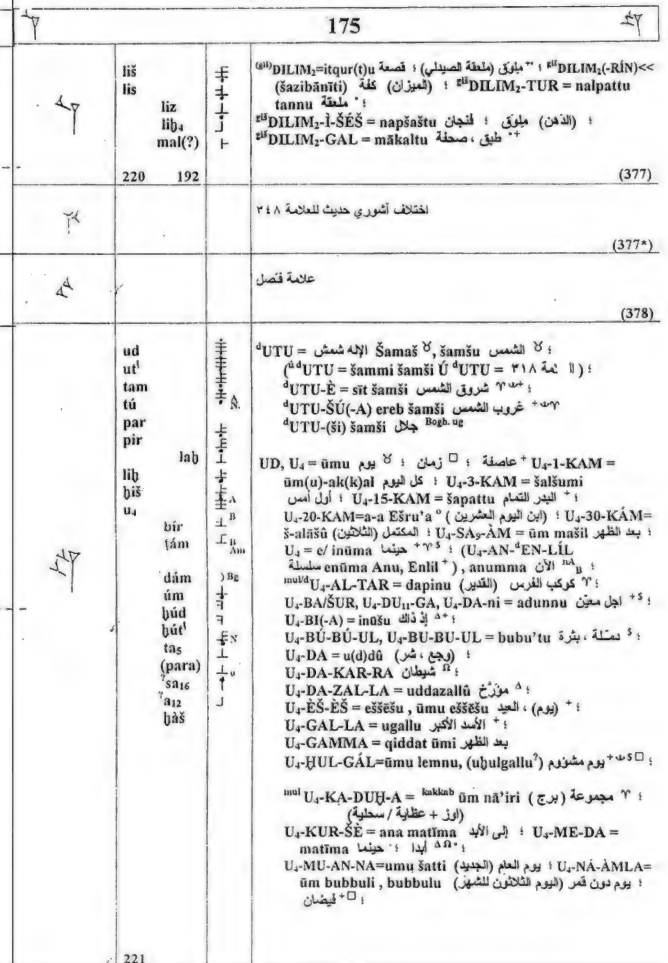 175
liš
lis
liz
liḫ₄
mal(?)
220 192
⁽ᵍⁱˢ⁾DILIM₂=itqur(t)u ملوق (ملعقة الصيدلي) ؛ قصعة ؛ ᵍⁱˢDILIM₂(-RÍN)<<
(šazibānīti) كفة (الميزان) ؛ ᵍⁱˢDILIM₂-TUR = nalpattu
tannu ملعقة ؛
ᵍⁱˢDILIM₂-Ì-ŠÉŠ = napšaštu ملوق (الدَهن) ؛ فنجان ؛
ᵍⁱˢDILIM₂-GAL = mākaltu طبق ، صحفة
(377)
اختلاف أشوري حديث للعلامة ٣٤٨
(377*)
علامة فَتصل
(378)
ud
utˡ
tam
tú
par
pir
laḫ
liḫ
ḫiš
u₄
bír
ṭám
dám
úm
ḫúd
ḫútˡ
ta₅
(para)
?sa₁₆
?a₁₂
ḫàš
221
ᵈUTU = الإله شمش Šamaš ၓ, šamšu الشمس ၓ ؛
(ᵘ́ ᵈUTU = šammi šamši Ú ᵈUTU = ٣١٨) ؛
ᵈUTU-È = sīt šamši شروق الشمس ؛
ᵈUTU-ŠÚ(-A) ereb šamši غروب الشمس
ᵈUTU-(ši) šamši جلال Bogh. ug
UD, U₄ = ūmu يوم ؛ زمان ؛ عاصفة + U₄-1-KAM =
ūm(u)-ak(k)al كل اليوم ؛ U₄-3-KAM = šalšumi
أول أمس ؛ U₄-15-KAM = šapattu البدر التمام + ؛
U₄-20-KAM=a-a Ešru'a ° (ابن اليوم العشرين) ؛ U₄-30-KÁM=
š-alāšû (الثلاثين) المكتمل ؛ U₄-SA₉-ÀM = ūm mašil بعد الظهر ؛
U₄ = e/ inūma حينما ؛ (U₄-AN-ᵈEN-LÍL
سلسلة enūma Anu, Enlil +), anumma الآن ؛
ᵐᵘˡ/ᵈU₄-AL-TAR = dapinu كوكب الفرس (القدير) ؛
U₄-BA/ŠUR, U₄-DU₁₁-GA, U₄-DA-ni = adunnu اجل معيّن ؛
U₄-BI(-A) = inūšu إذ ذاك ؛
U₄-BÚ-BÚ-UL, U₄-BU-BU-UL = bubu'tu دمّلة ، بثرة ؛
U₄-DA = u(d)dû (وجع ، شر) ؛
U₄-DA-KAR-RA شيطان ؛
U₄-DA-ZAL-LA = uddazallû مؤرّخ ؛
U₄-ÈŠ-ÈŠ = eššēšu , ūmu eššēšu (يوم) ، العيد ؛
U₄-GAL-LA = ugallu الأسد الأكبر ؛
U₄-GAMMA = qiddat ūmi بعد الظهر
U₄-ḪUL-GÁL=ūmu lemnu, (uḫulgallu?) يوم مشؤوم ؛
ᵐᵘˡ U₄-KA-DUḪ-A = ᵏᵃᵏᵏᵃᵇ ūm nā'iri مجموعة (برج) ؛
(اوز + عظاية / سحلية)
U₄-KUR-ŠÈ = ana matīma إلى الأبد ؛ U₄-ME-DA =
matīma حينما ؛ أبدا ؛
U₄-MU-AN-NA=umu šatti يوم العام (الجديد) ؛ U₄-NÁ-ÀMLA=
ūm bubbuli , bubbulu يوم دون قمر (اليوم الثلاثون للشهر) ؛
فيضان + ؛